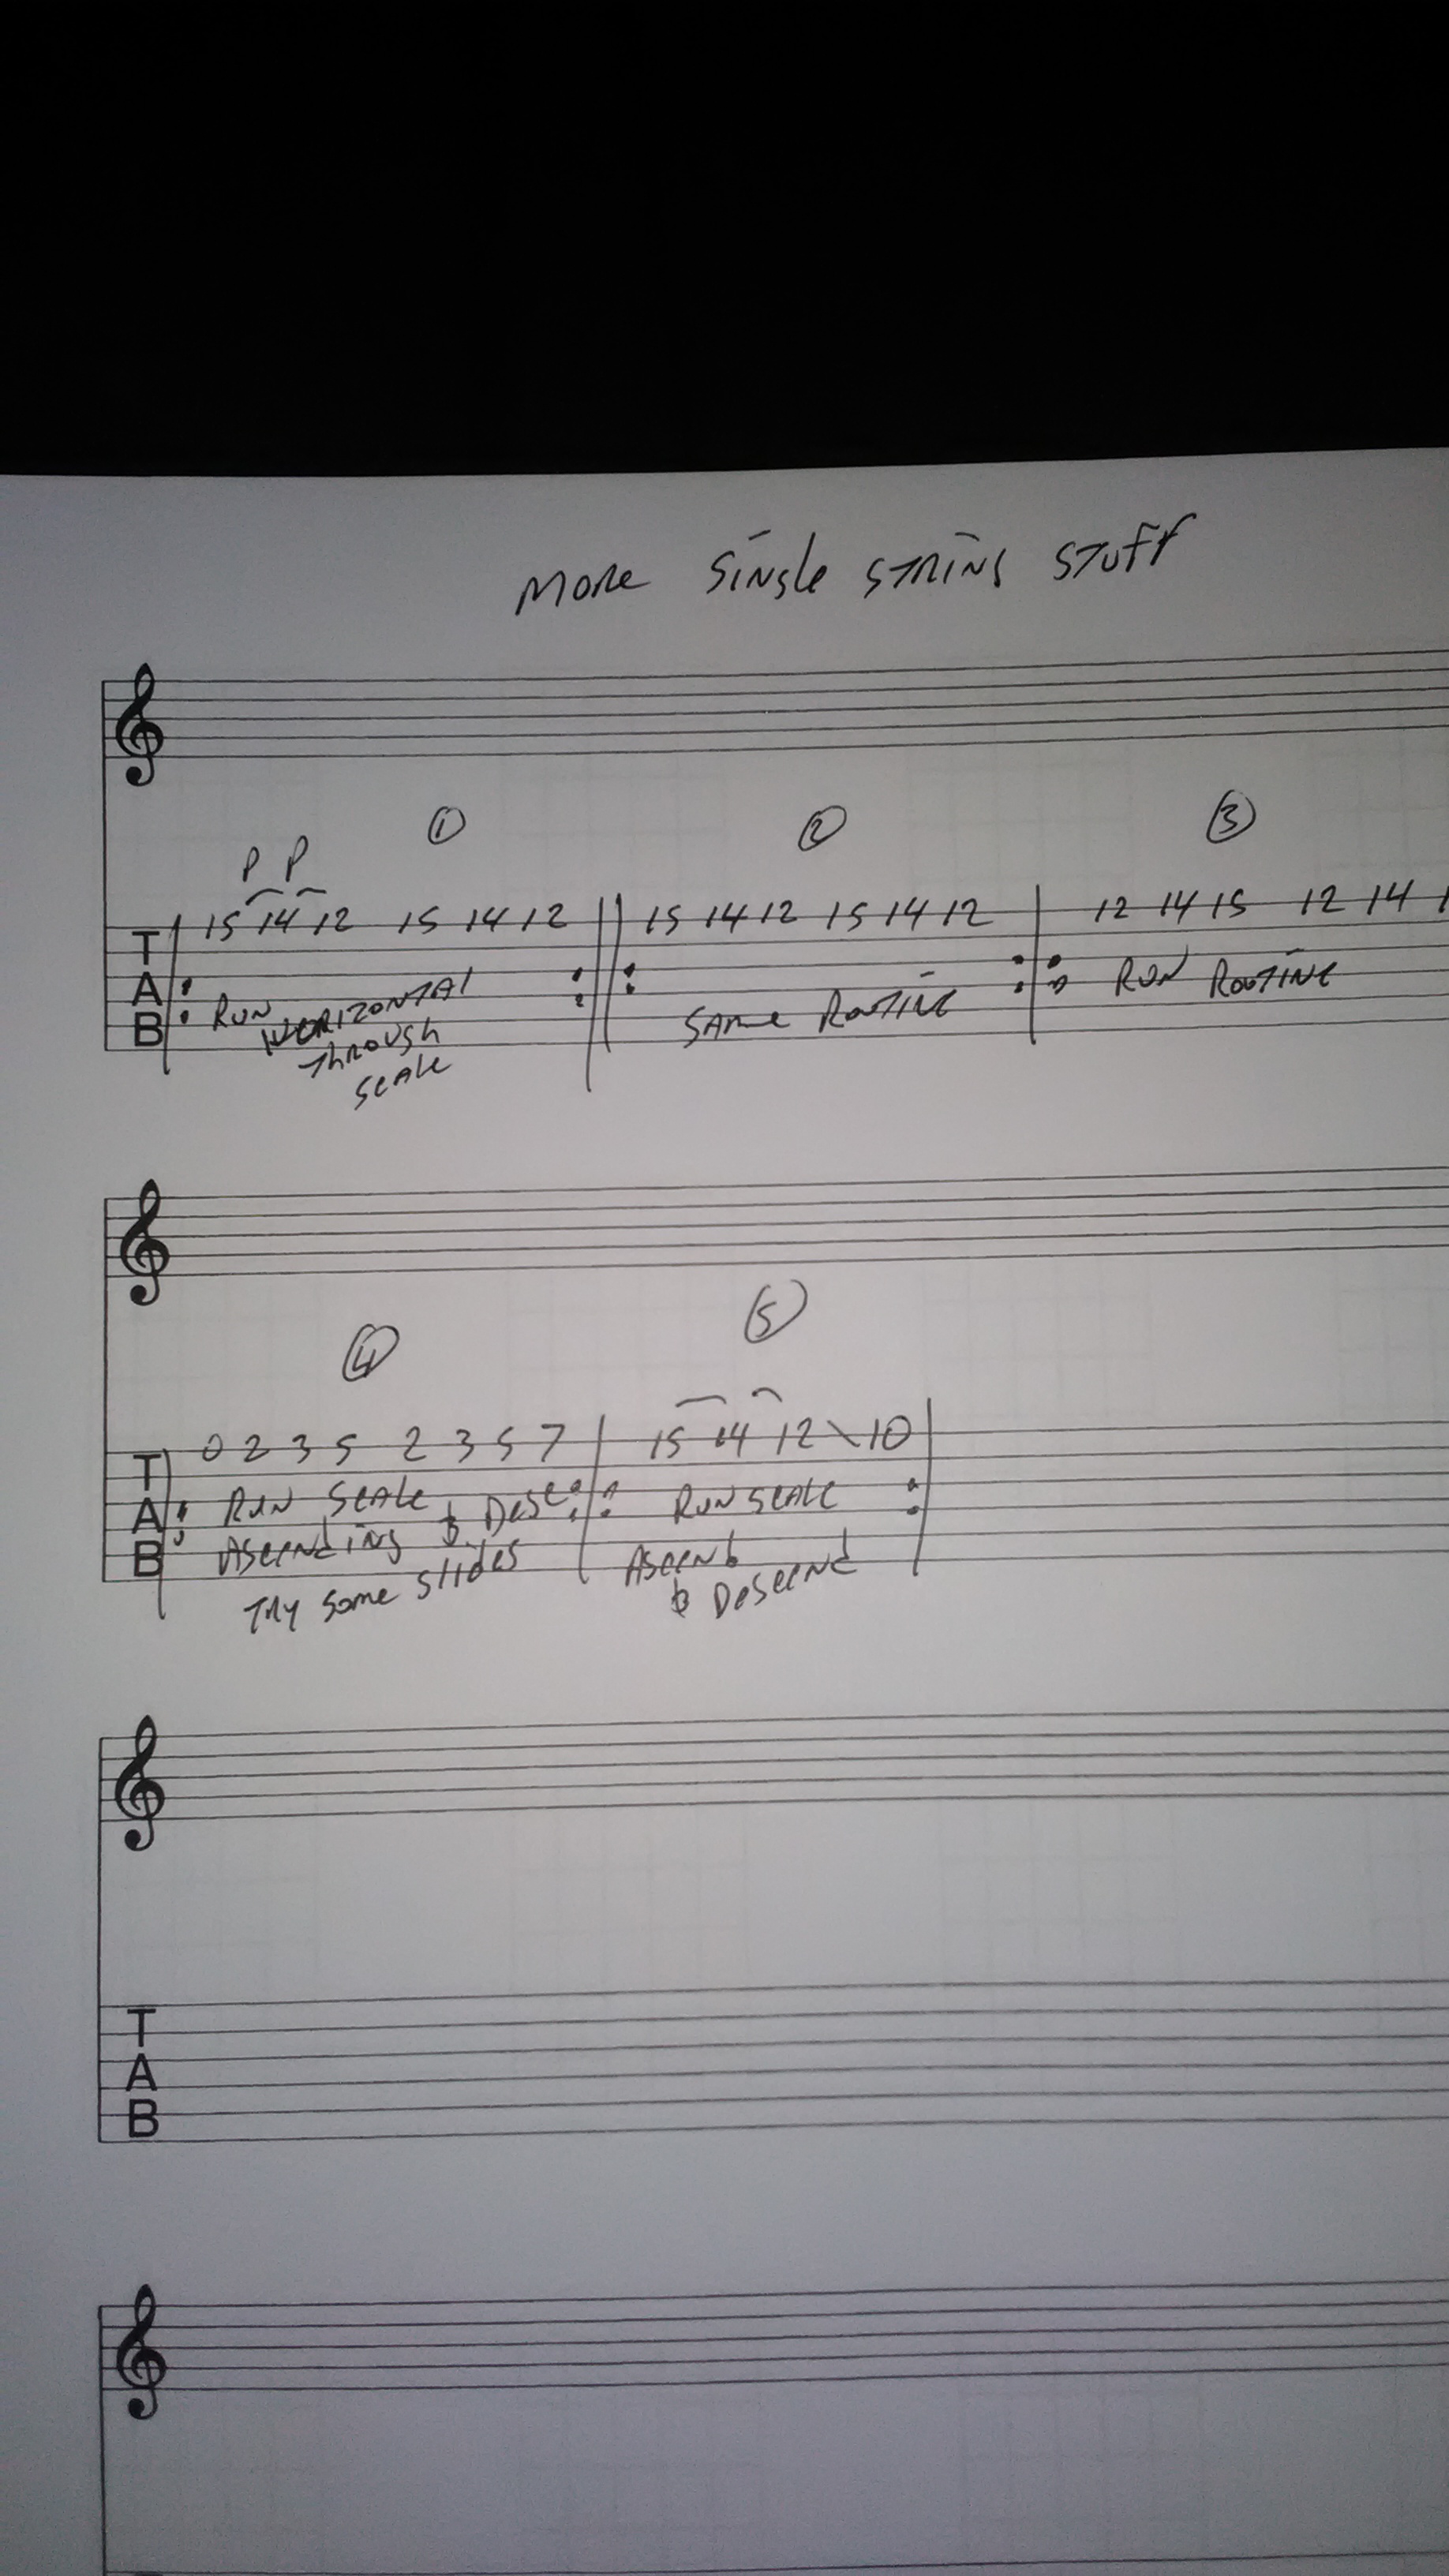 More Single String Stuff
① ② ③
P P
15 14 12 15 14 12 15 14 12 15 14 12 12 14 15 12 14
T
A
B
Run Horizontal
Through
Scale
Same Routine
Run Routine
④ ⑤
0 2 3 5 2 3 5 7 15 14 12\10
T
A
B
Run Scale
Ascending & Desc
Try some slides
Run Scale
Ascend
& Descend
T
A
B